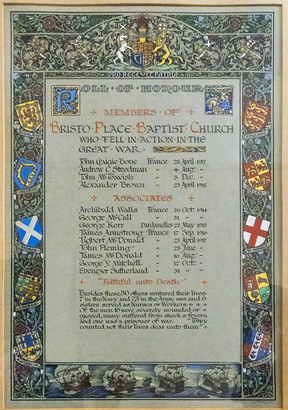 PRO REGE ET PATRIA
ROLL OF HONOUR
MEMBERS OF
BRISTO PLACE BAPTIST CHURCH
WHO FELL IN ACTION IN THE
GREAT WAR
John Craigie Bone France 28 April 1917
Andrew C. Steedman " 4 Aug: "
John McGavish " 5 Dec. "
Alexander Brown " 25 April 1918
ASSOCIATES
Archibald Walls France 26 Oct: 1914
George McCall " 31 " "
George Kerr Dardanelles 27 May 1915
James Armstrong France 17 Sep. 1916
Robert McDonald " 23 April 1917
John Fleming " 25 June "
James McDonald " 16 Aug: "
George Y. Mitchell " 12 Oct: "
Ebenezer Sutherland " 31 " "
"Faithful unto Death"
Besides these, 80 others ventured their lives:
7 in the Navy and 73 in the Army. Men and 6
sisters served as Nurses or Workers.
Of the men 16 were severely wounded or
gassed, many suffered from shock & fevers
and one was a prisoner of war. "They
counted not their lives dear unto them"